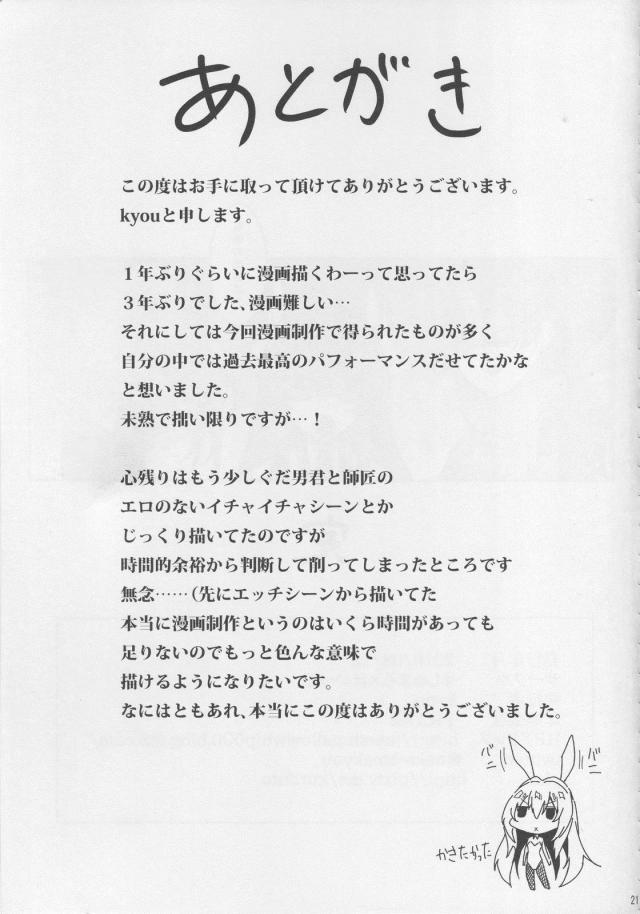 あとがき
この度はお手に取って頂けてありがとうございます。
kyouと申します。
１年ぶりぐらいに漫画描くわーって思ってたら
３年ぶりでした、漫画難しい…
それにしては今回漫画制作で得られたものが多く
自分の中では過去最高のパフォーマンスだせてたかな
と想いました。
未熟で拙い限りですが…！
心残りはもう少しぐだ男君と師匠の
エロのないイチャイチャシーンとか
じっくり描いてたのですが
時間的余裕から判断して削ってしまったところです
無念……（先にエッチシーンから描いてた
本当に漫画制作というのはいくら時間があっても
足りないのでもっと色んな意味で
描けるようになりたいです。
なにはともあれ、本当にこの度はありがとうございました。
バニ
バニ
かきたかった
21